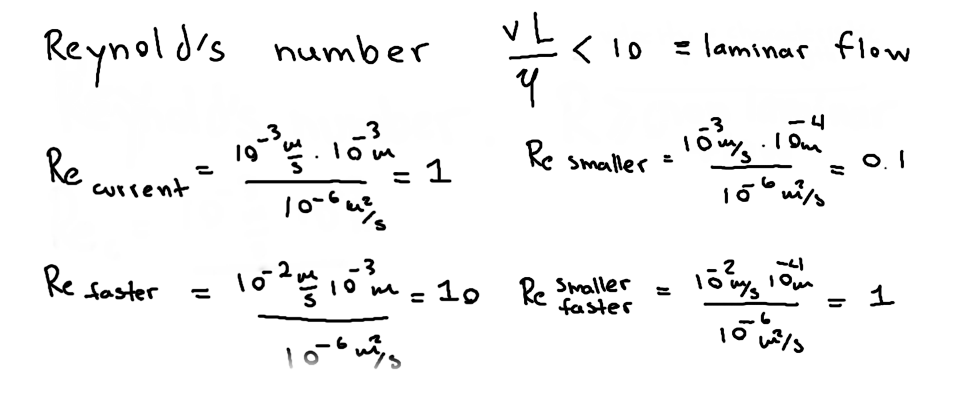 Reynold's number vL/γ < 10 = laminar flow
Re current = 10⁻³ m/s · 10⁻³ m / 10⁻⁶ m²/s = 1
Re smaller = 10⁻³ m/s · 10⁻⁴ m / 10⁻⁶ m²/s = 0.1
Re faster = 10⁻² m/s 10⁻³ m / 10⁻⁶ m²/s = 10
Re smaller faster = 10⁻² m/s 10⁻⁴ m / 10⁻⁶ m²/s = 1